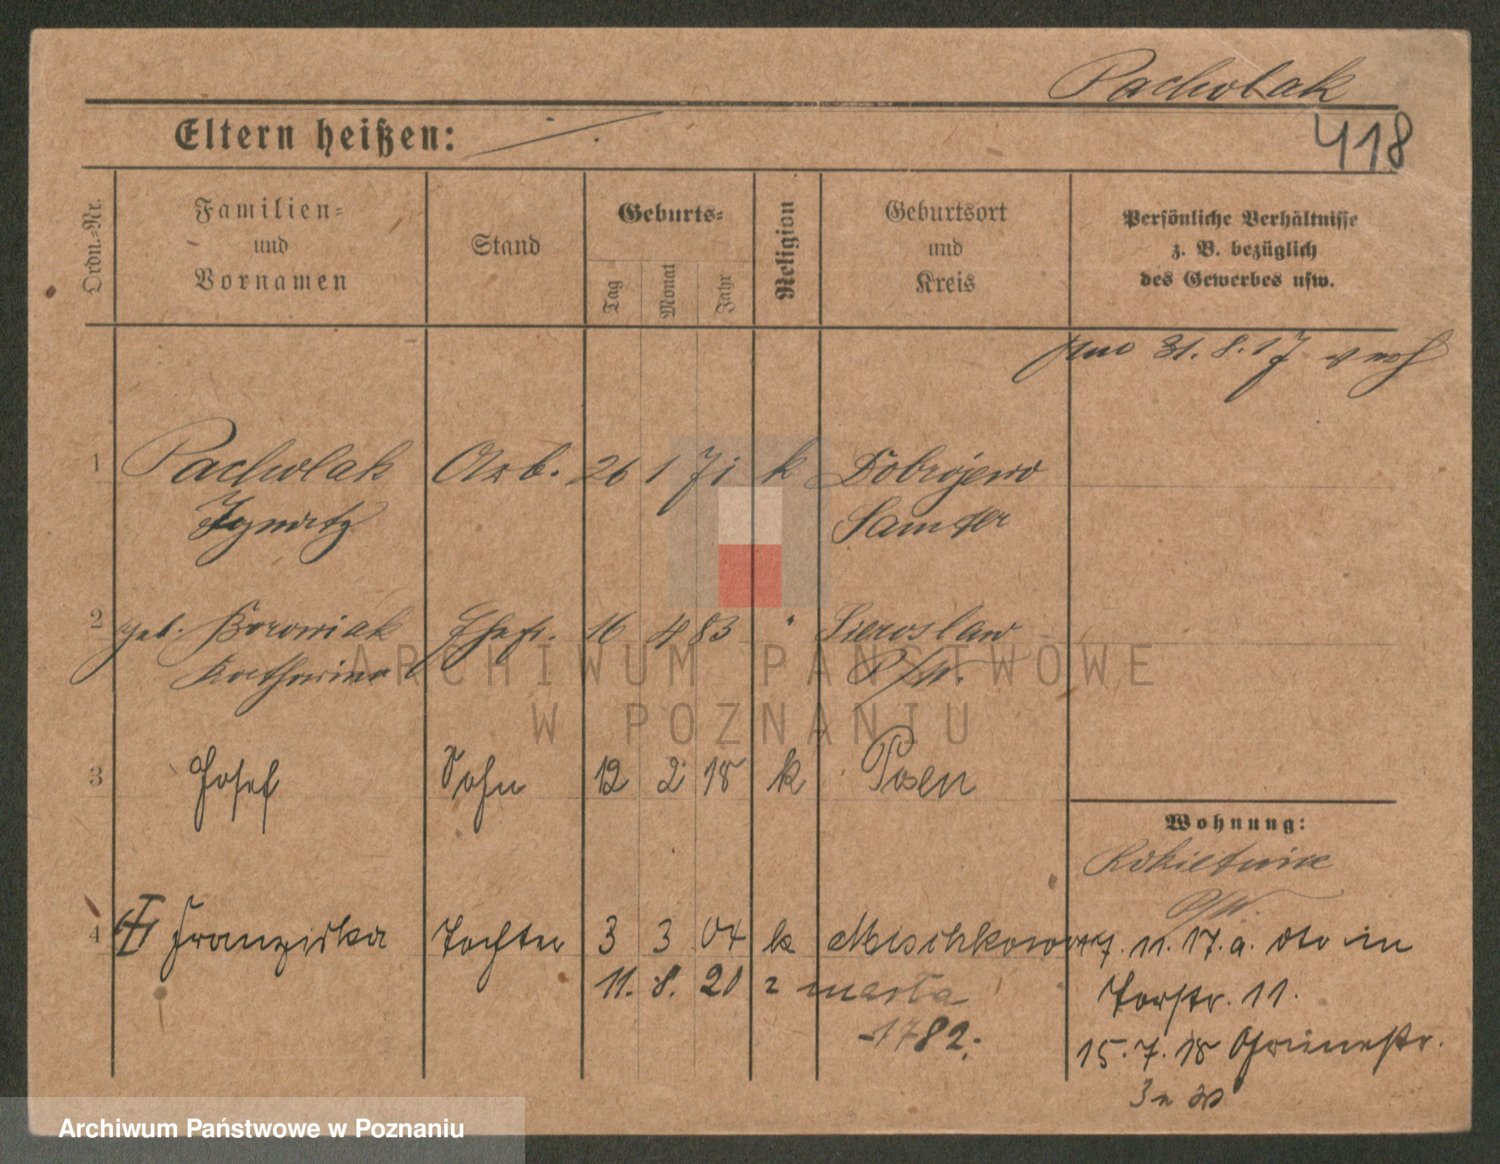 Pacholak
418
Eltern heißen:
Ordn.-Nr.
Familien-
und
Vornamen
Stand
Geburts-
Tag
Monat
Jahr
Religion
Geburtsort
und
Kreis
Persönliche Verhältnisse
z. B. bezüglich
des Gewerbes usw.
31. 8. 17
1 Pacholak Arb. 26 1 71 k Dobrojewo
Ignatz Samter
2 geb. Borowiak Ehefr. 16 4 83 " Sieroslaw
Katharina P/W.
ARCHIWUM PAŃSTWOWE
W POZNANIU
3 Josef Sohn 12 2 18 k Posen
Wohnung:
Rokietnice
P/W.
4 Franziska Tochter 3 3 04 k Mischkowo
17. 11. 17. a. oto in
11. 8. 20 z marła
Torstr. 11.
-1782.-
15. 7. 18 Grünestr.
3
Archiwum Państwowe w Poznaniu